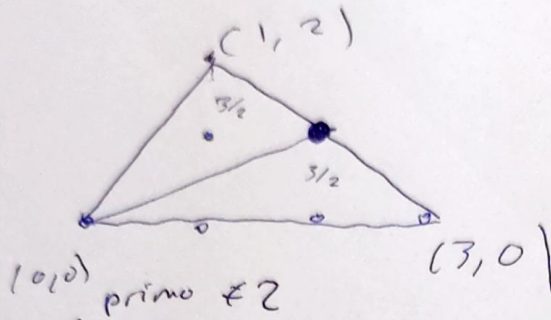 (1, 2)
3/2
3/2
(0,0)
(3, 0)
primo ≠ 2